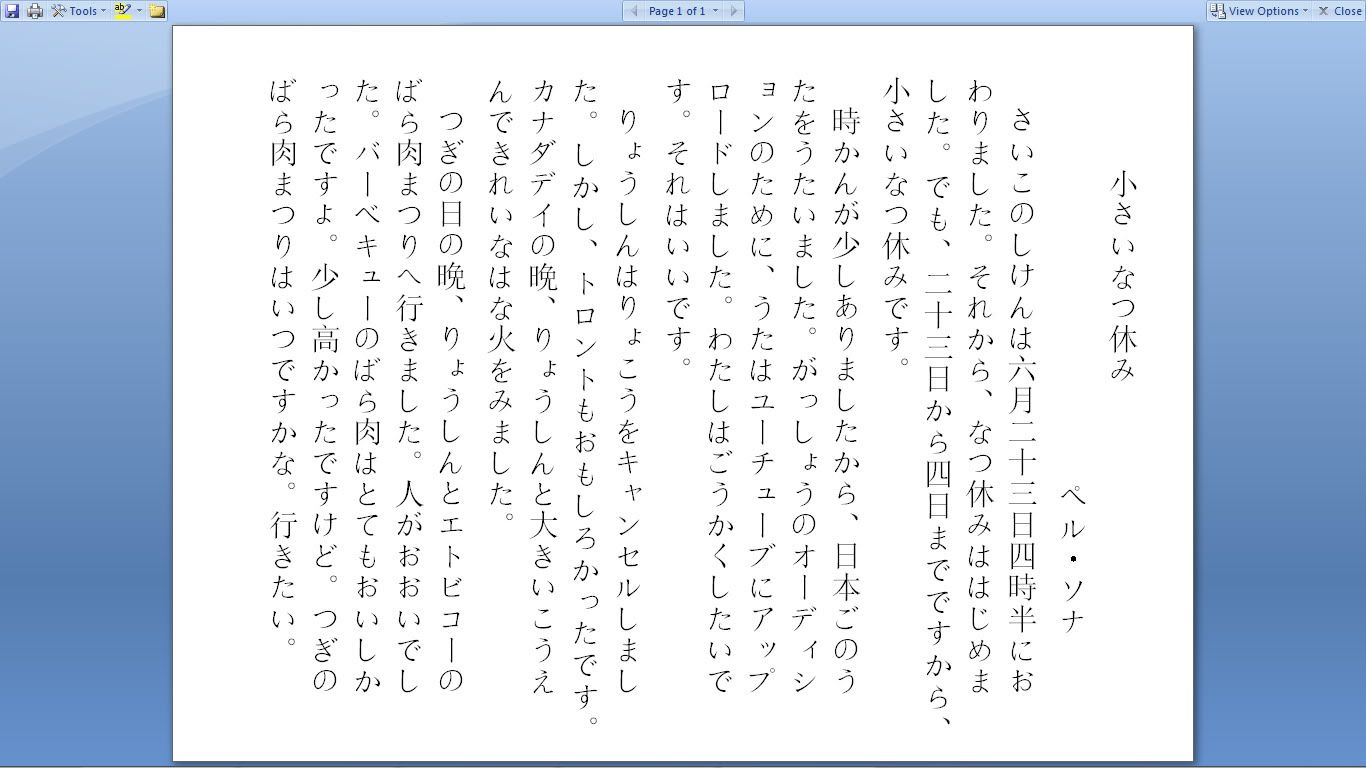 Tools
Page 1 of 1
View Options
Close
小さいなつ休み
ペル・ソナ
さいこのしけんは六月二十三日四時半にお
わりました。それから、なつ休みははじめま
した。でも、二十三日から四日までですから、
小さいなつ休みです。
時かんが少しありましたから、日本ごのう
たをうたいました。がっしょうのオーディシ
ョンのために、うたはユーチューブにアップ
ロードしました。わたしはごうかくしたいで
す。それはいいです。
りょうしんはりょこうをキャンセルしまし
た。しかし、トロントもおもしろかったです。
カナダデイの晩、りょうしんと大きいこうえ
んできれいなはな火をみました。
つぎの日の晩、りょうしんとエトビコーの
ばら肉まつりへ行きました。人がおおいでし
た。バーベキューのばら肉はとてもおいしか
ったですよ。少し高かったですけど。つぎの
ばら肉まつりはいつですかな。行きたい。